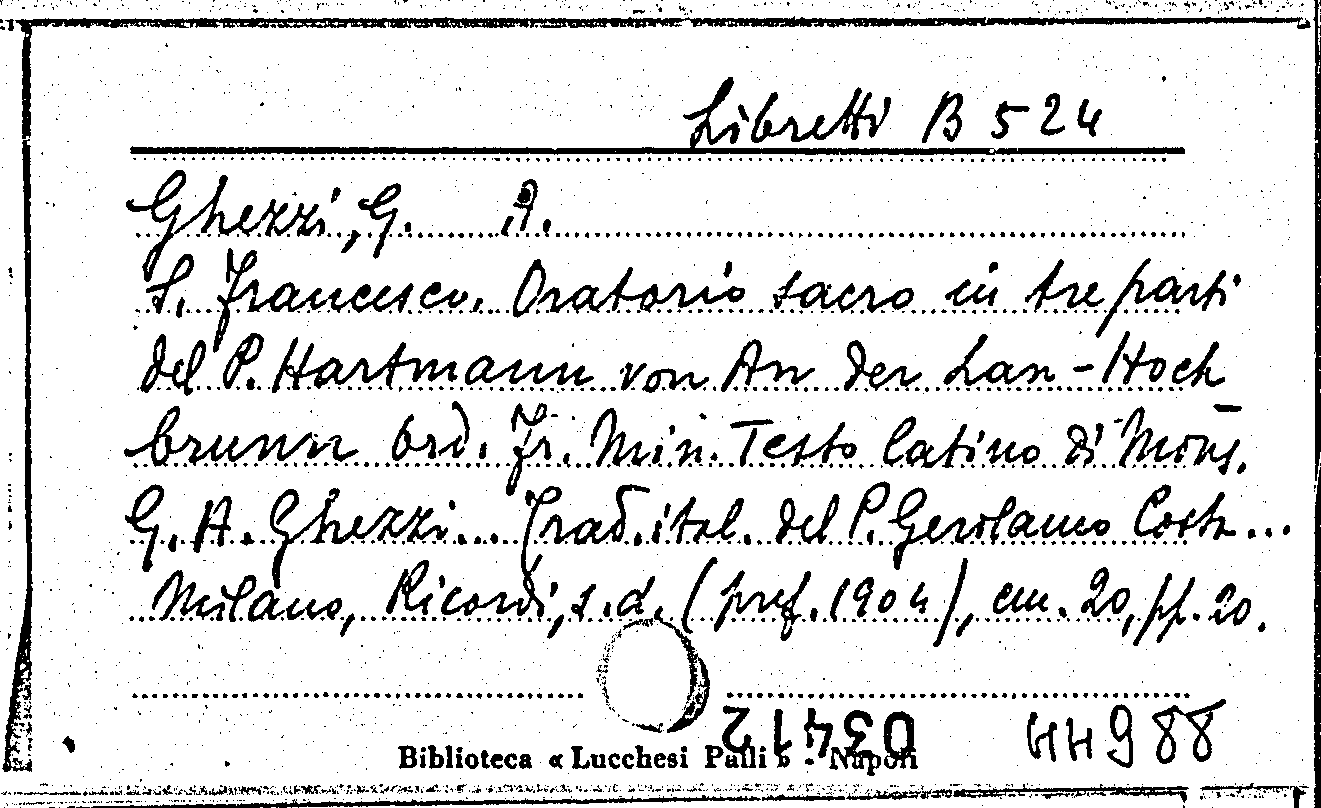 Libretti B 524
Ghezzi, G. A.
S. Francesco. Oratorio sacro in tre parti
del P. Hartmann von An der Lan-Hoch
brunn ord. Fr. Min. Testo latino di Mons.
G. A. Ghezzi... Trad. ital. del P. Gerolamo Costa...
Milano, Ricordi, s.d. (pref. 1904), cm. 20, pp. 20.
03412
Biblioteca « Lucchesi Palli » - Napoli